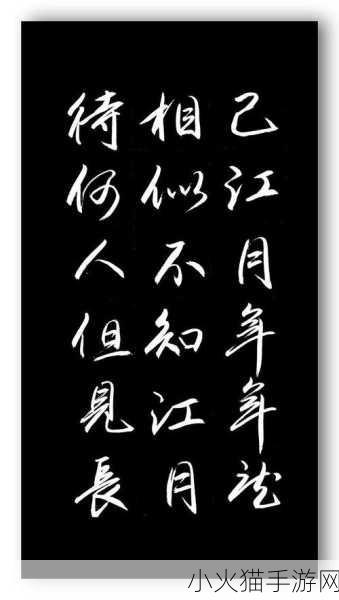 已江月年年
相似不知江月
待何人但見長
小火猫手游网